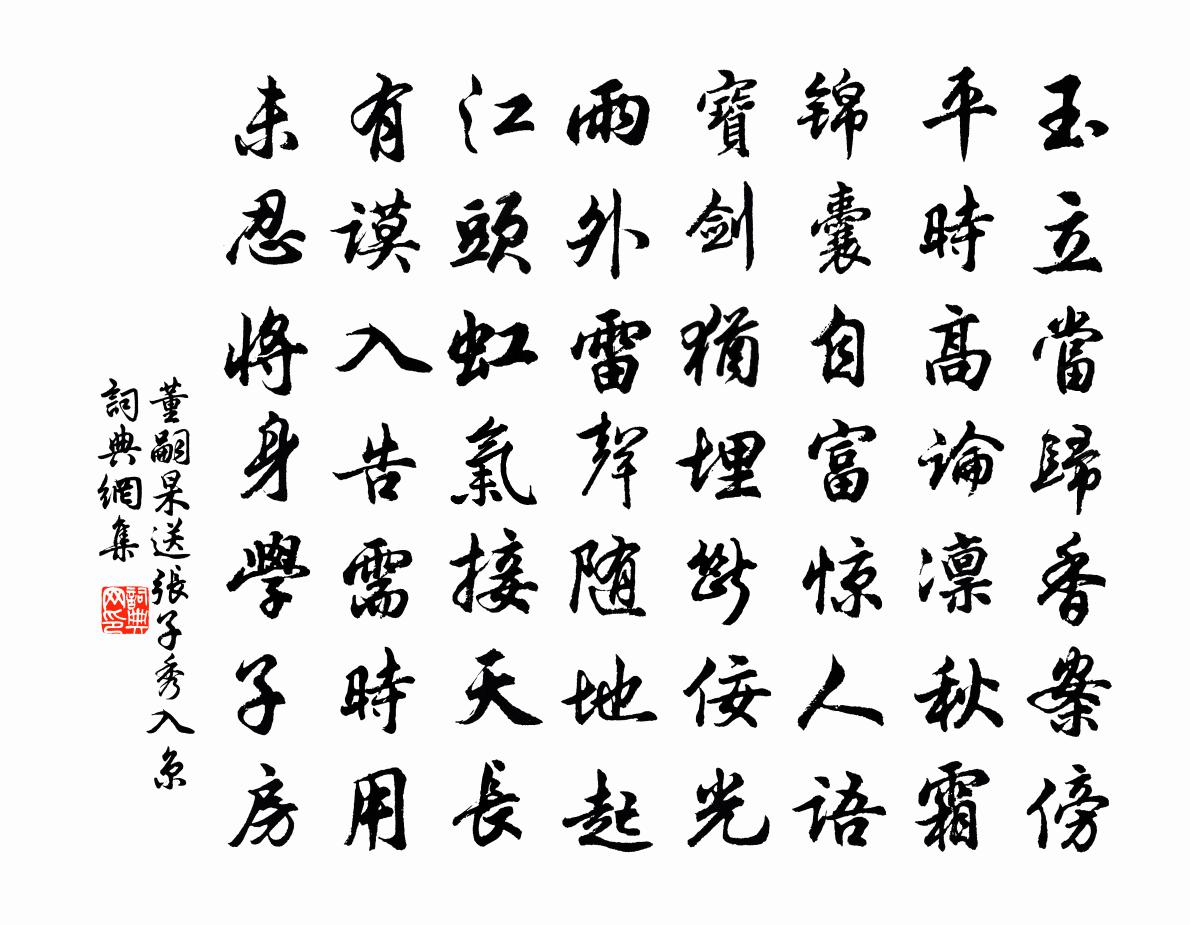 玉立當歸香案傍
平時高論凛秋霜
錦囊自富惊人語
寶劍猶埋斷佞光
雨外雷聲随地起
江頭虹氣接天長
有謨入告需時用
未忍將身學子房
董嗣杲送張子秀入京
詞典網集
詞典网印